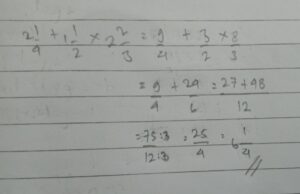 2 1/4 + 1 1/2 × 2 2/3 = 9/4 + 3/2 × 8/3
= 9/4 + 24/6 = 27+48/12
= 75:3/12:3 = 25/4 = 6 1/4 //